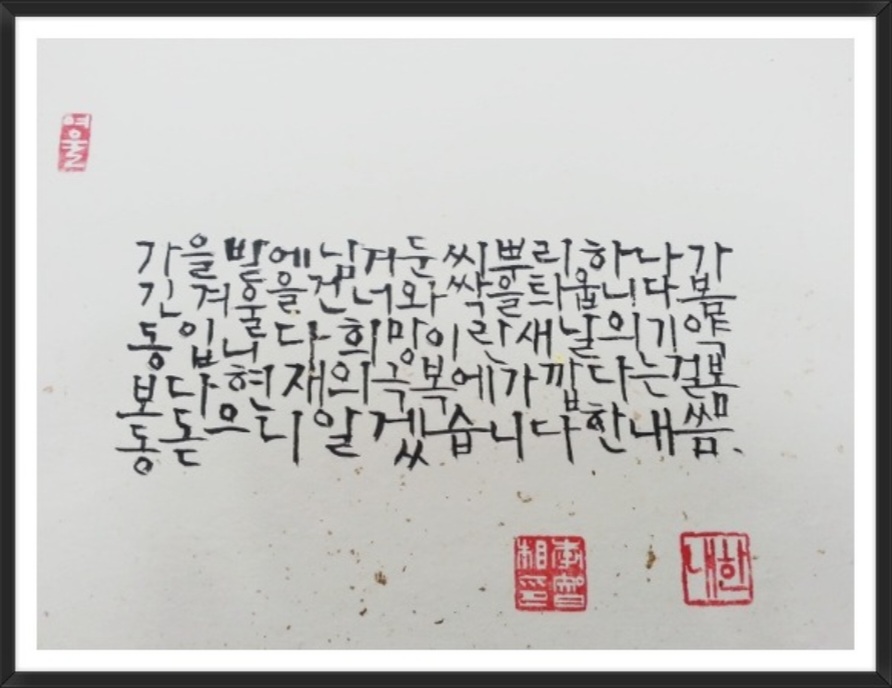 여울
가을 밭에 남겨둔 씨뿌리 하나가
긴 겨울을 건너와 싹을 틔웁니다 봄
동입니다 희망이란 새날의 기약
보다 현재의 극복에 가깝다는 걸 봄
동 돋으니 알겠습니다 한내 씀.
한내